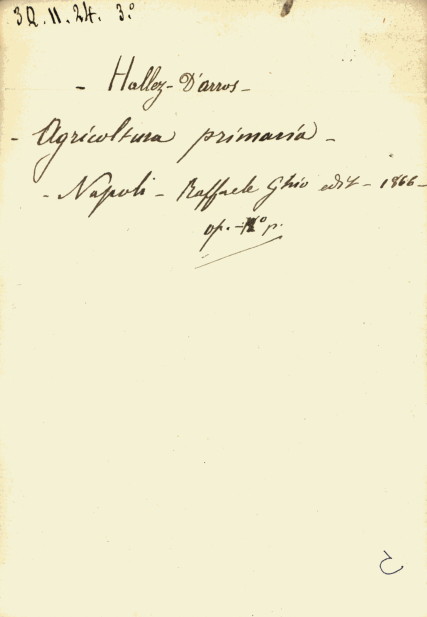 3Q. II. 24. 3.°
- Hallez - D'arros -
- Agricoltura primaria -
- Napoli - Raffaele Ghio edit - 1866 -
op. - p.